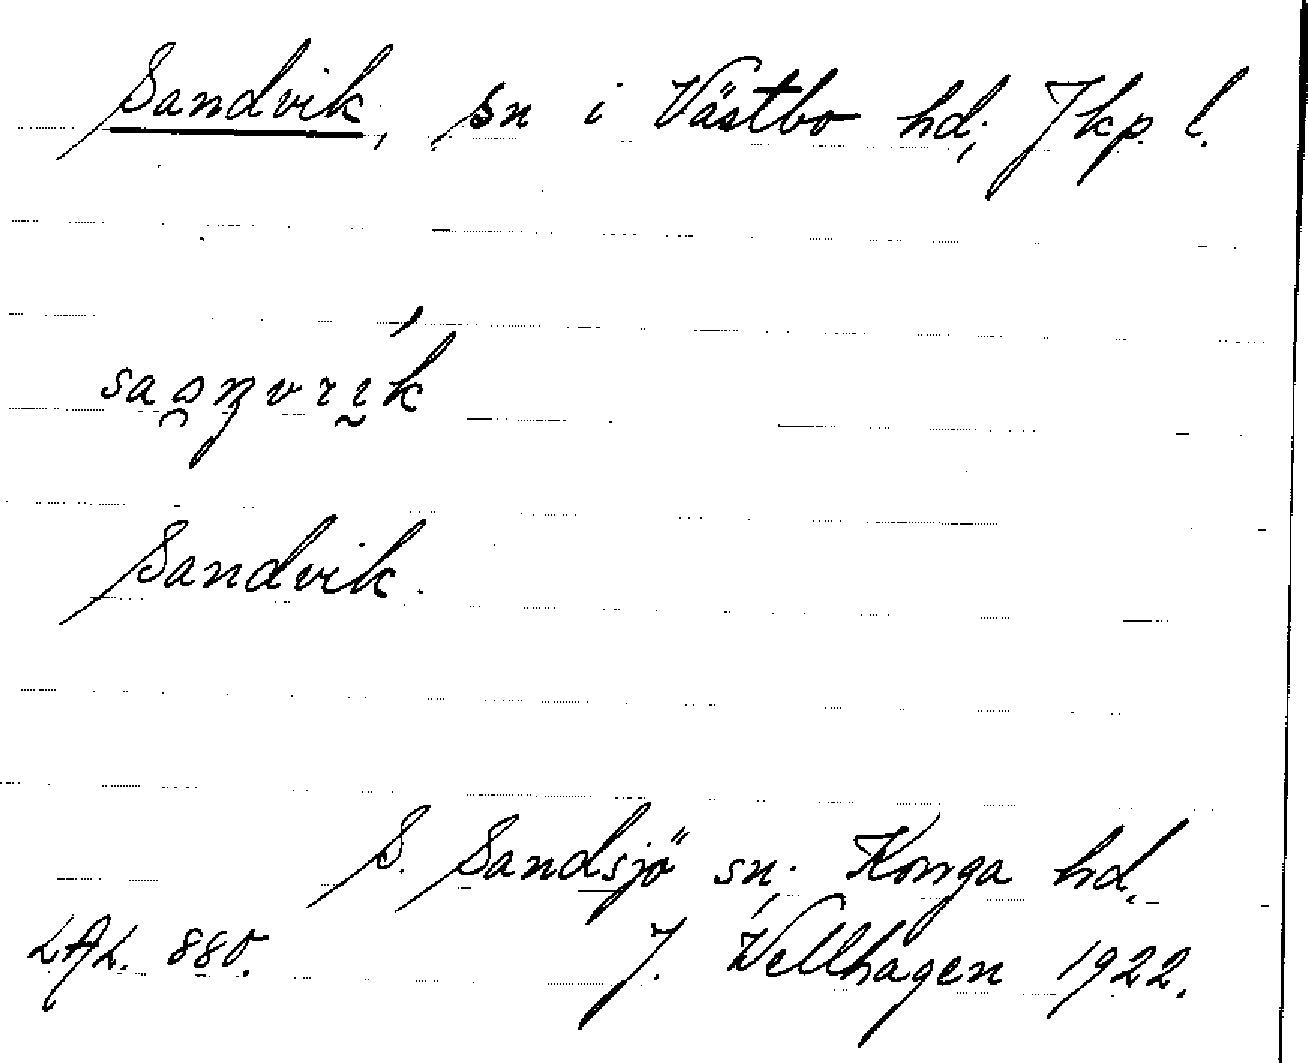 Sandvik, sn i Västbo hd; Jkp. l.
Sandvik.
S. Sandsjö sn. Konga hd.
LAL. 880. J. Vellhagen 1922.